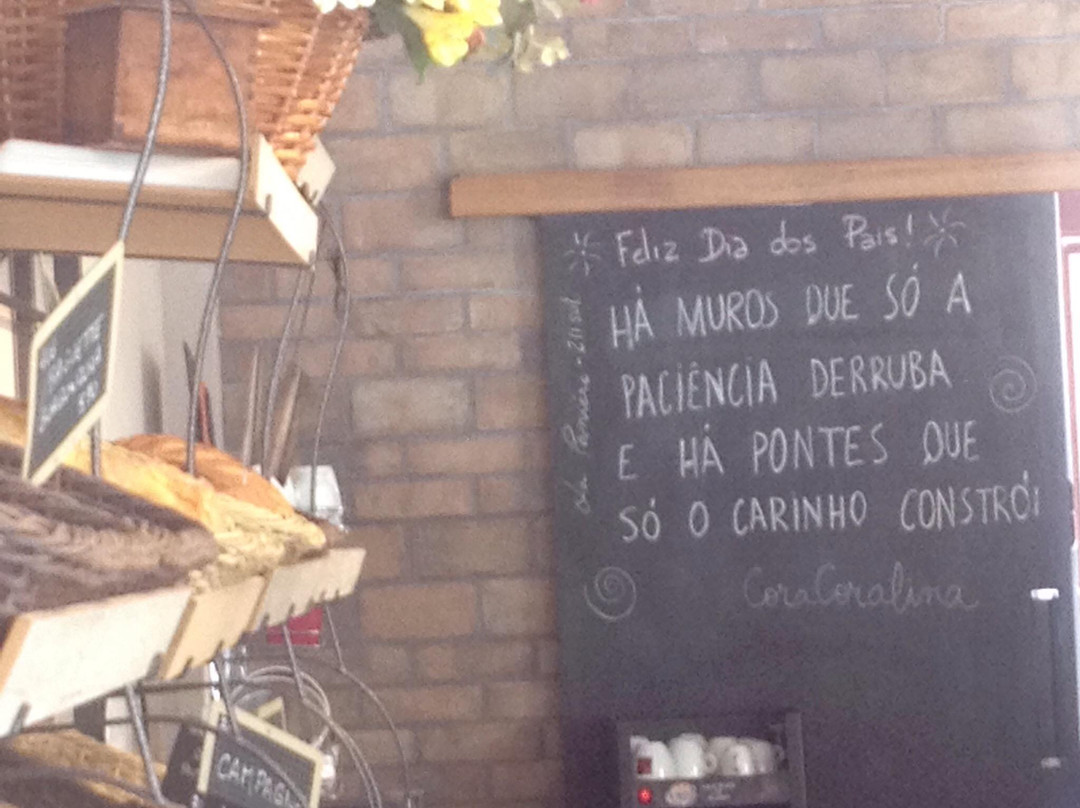 Feliz Dia dos Pais!
HÁ MUROS QUE SÓ A
PACIÊNCIA DERRUBA
E HÁ PONTES QUE
SÓ O CARINHO CONSTRÓI
CoraCoralina
BAGUETTE